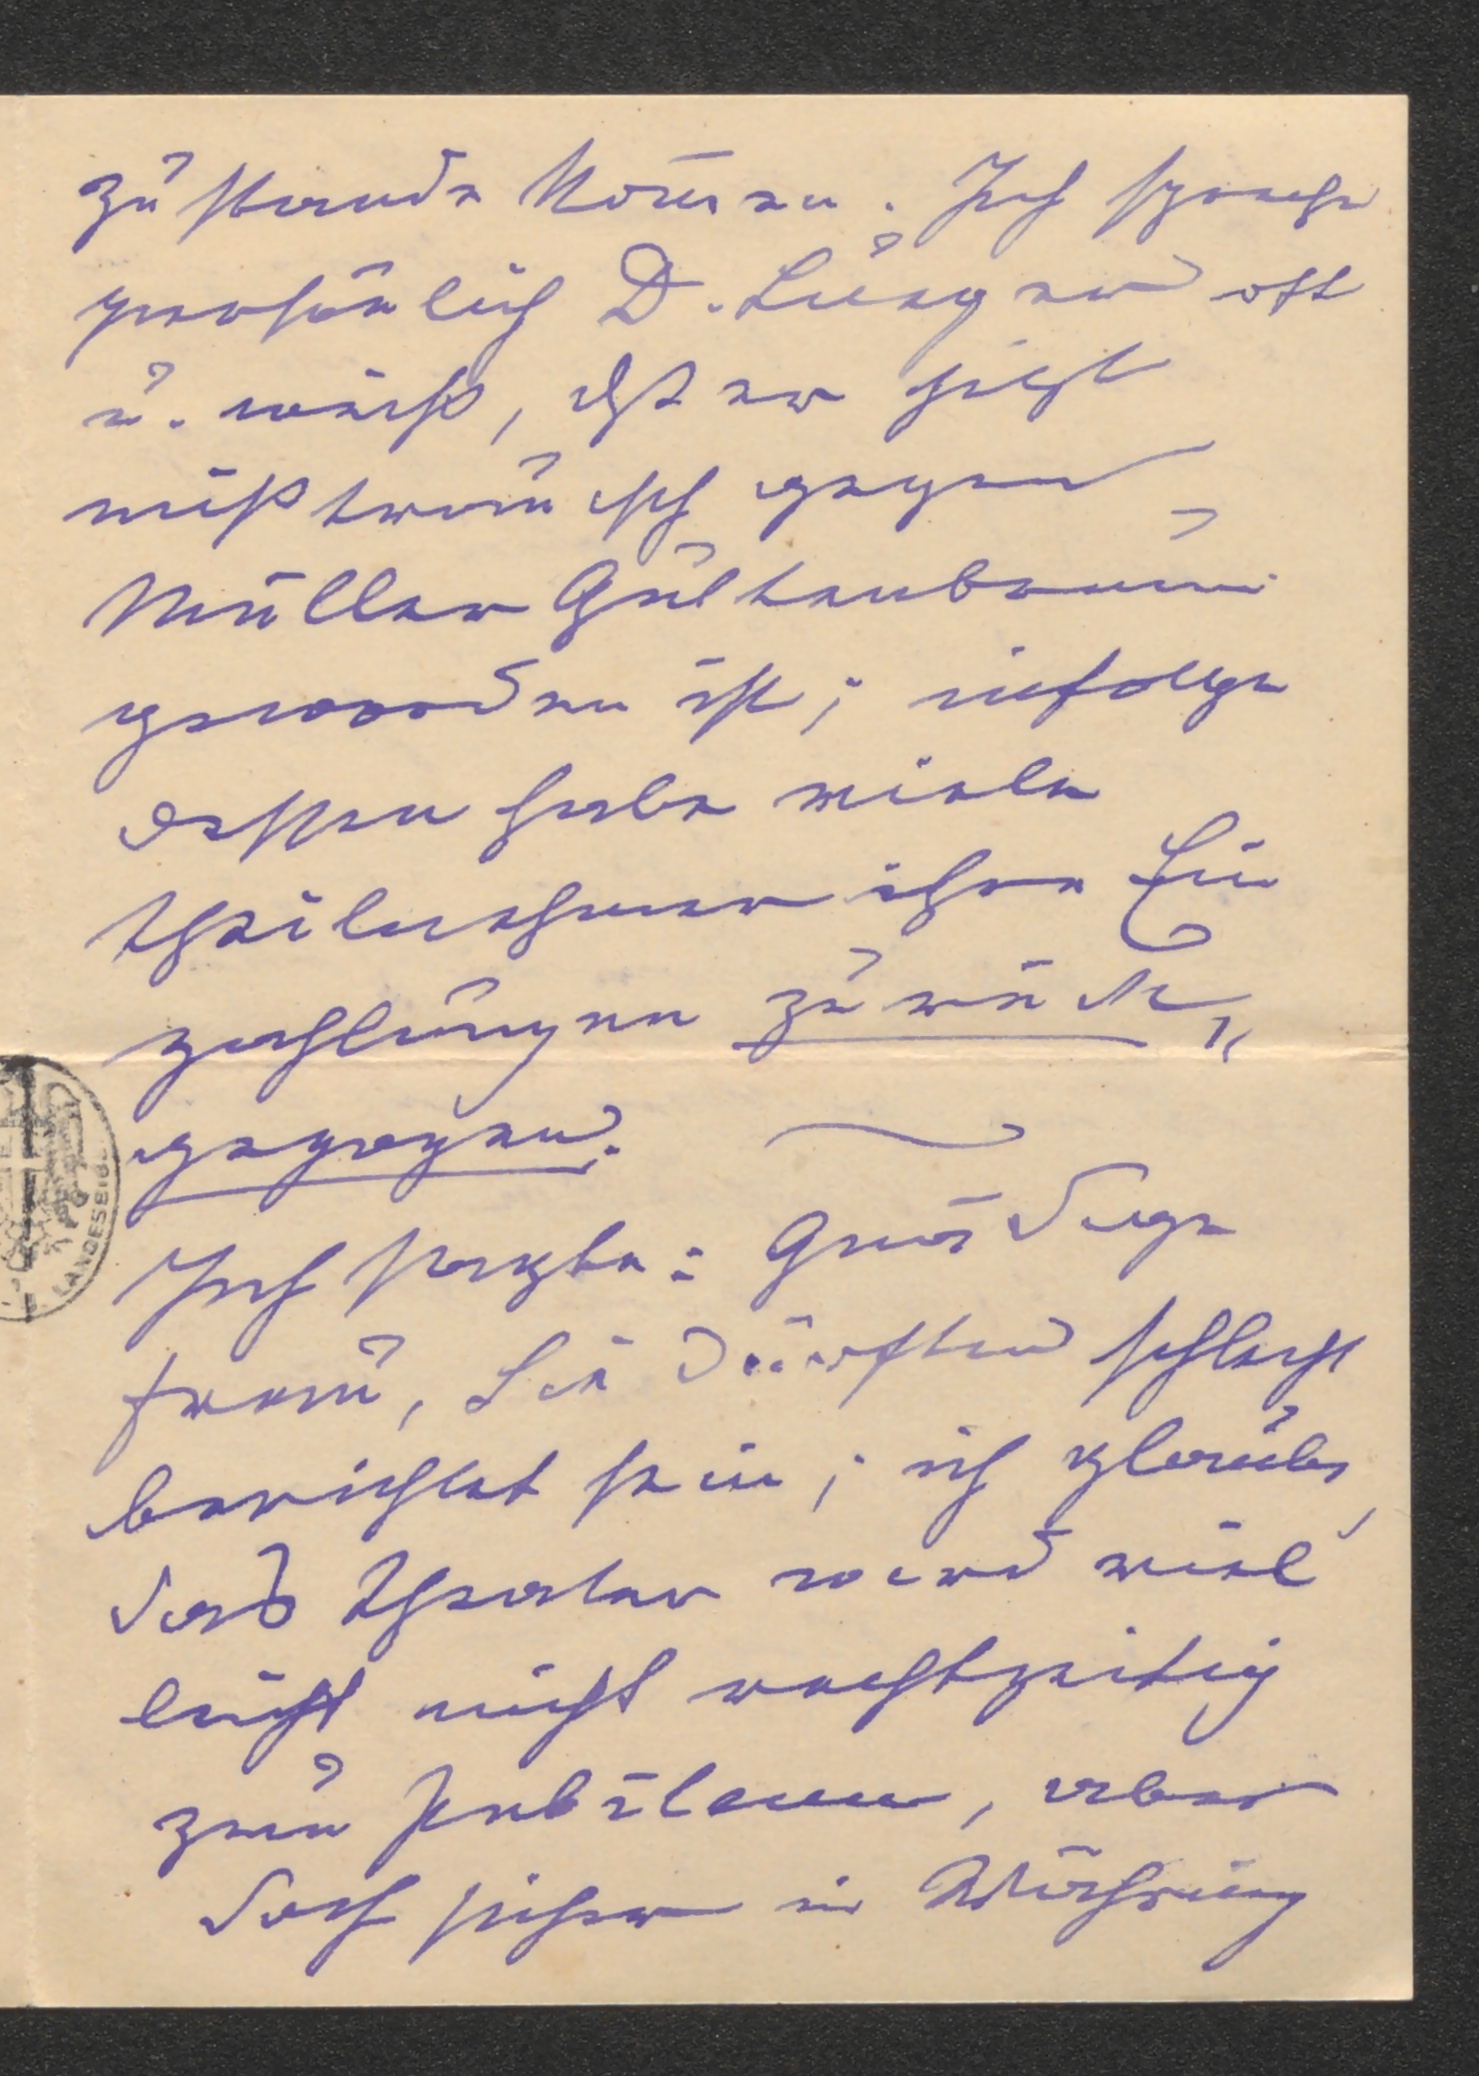 zu stande kom̄en. Ich spreche
persönlich D. Lueger oft
u. weiß, daß er jetzt
mißtrauisch gegen
Müller Guttenbrunn
geworden ist; infolge
dessen habe viele
Theilnehmer ihre Ein
zahlungen zurück„
gezogen.
Ich sagte: Gnädige
Frau, Sie dürften schlecht
berichtet sein; ich glaube,
das Theater wird viel
leicht nicht rechtzeitig
zum Jubiläum, aber
doch sicher in Währing
LANDESBIB